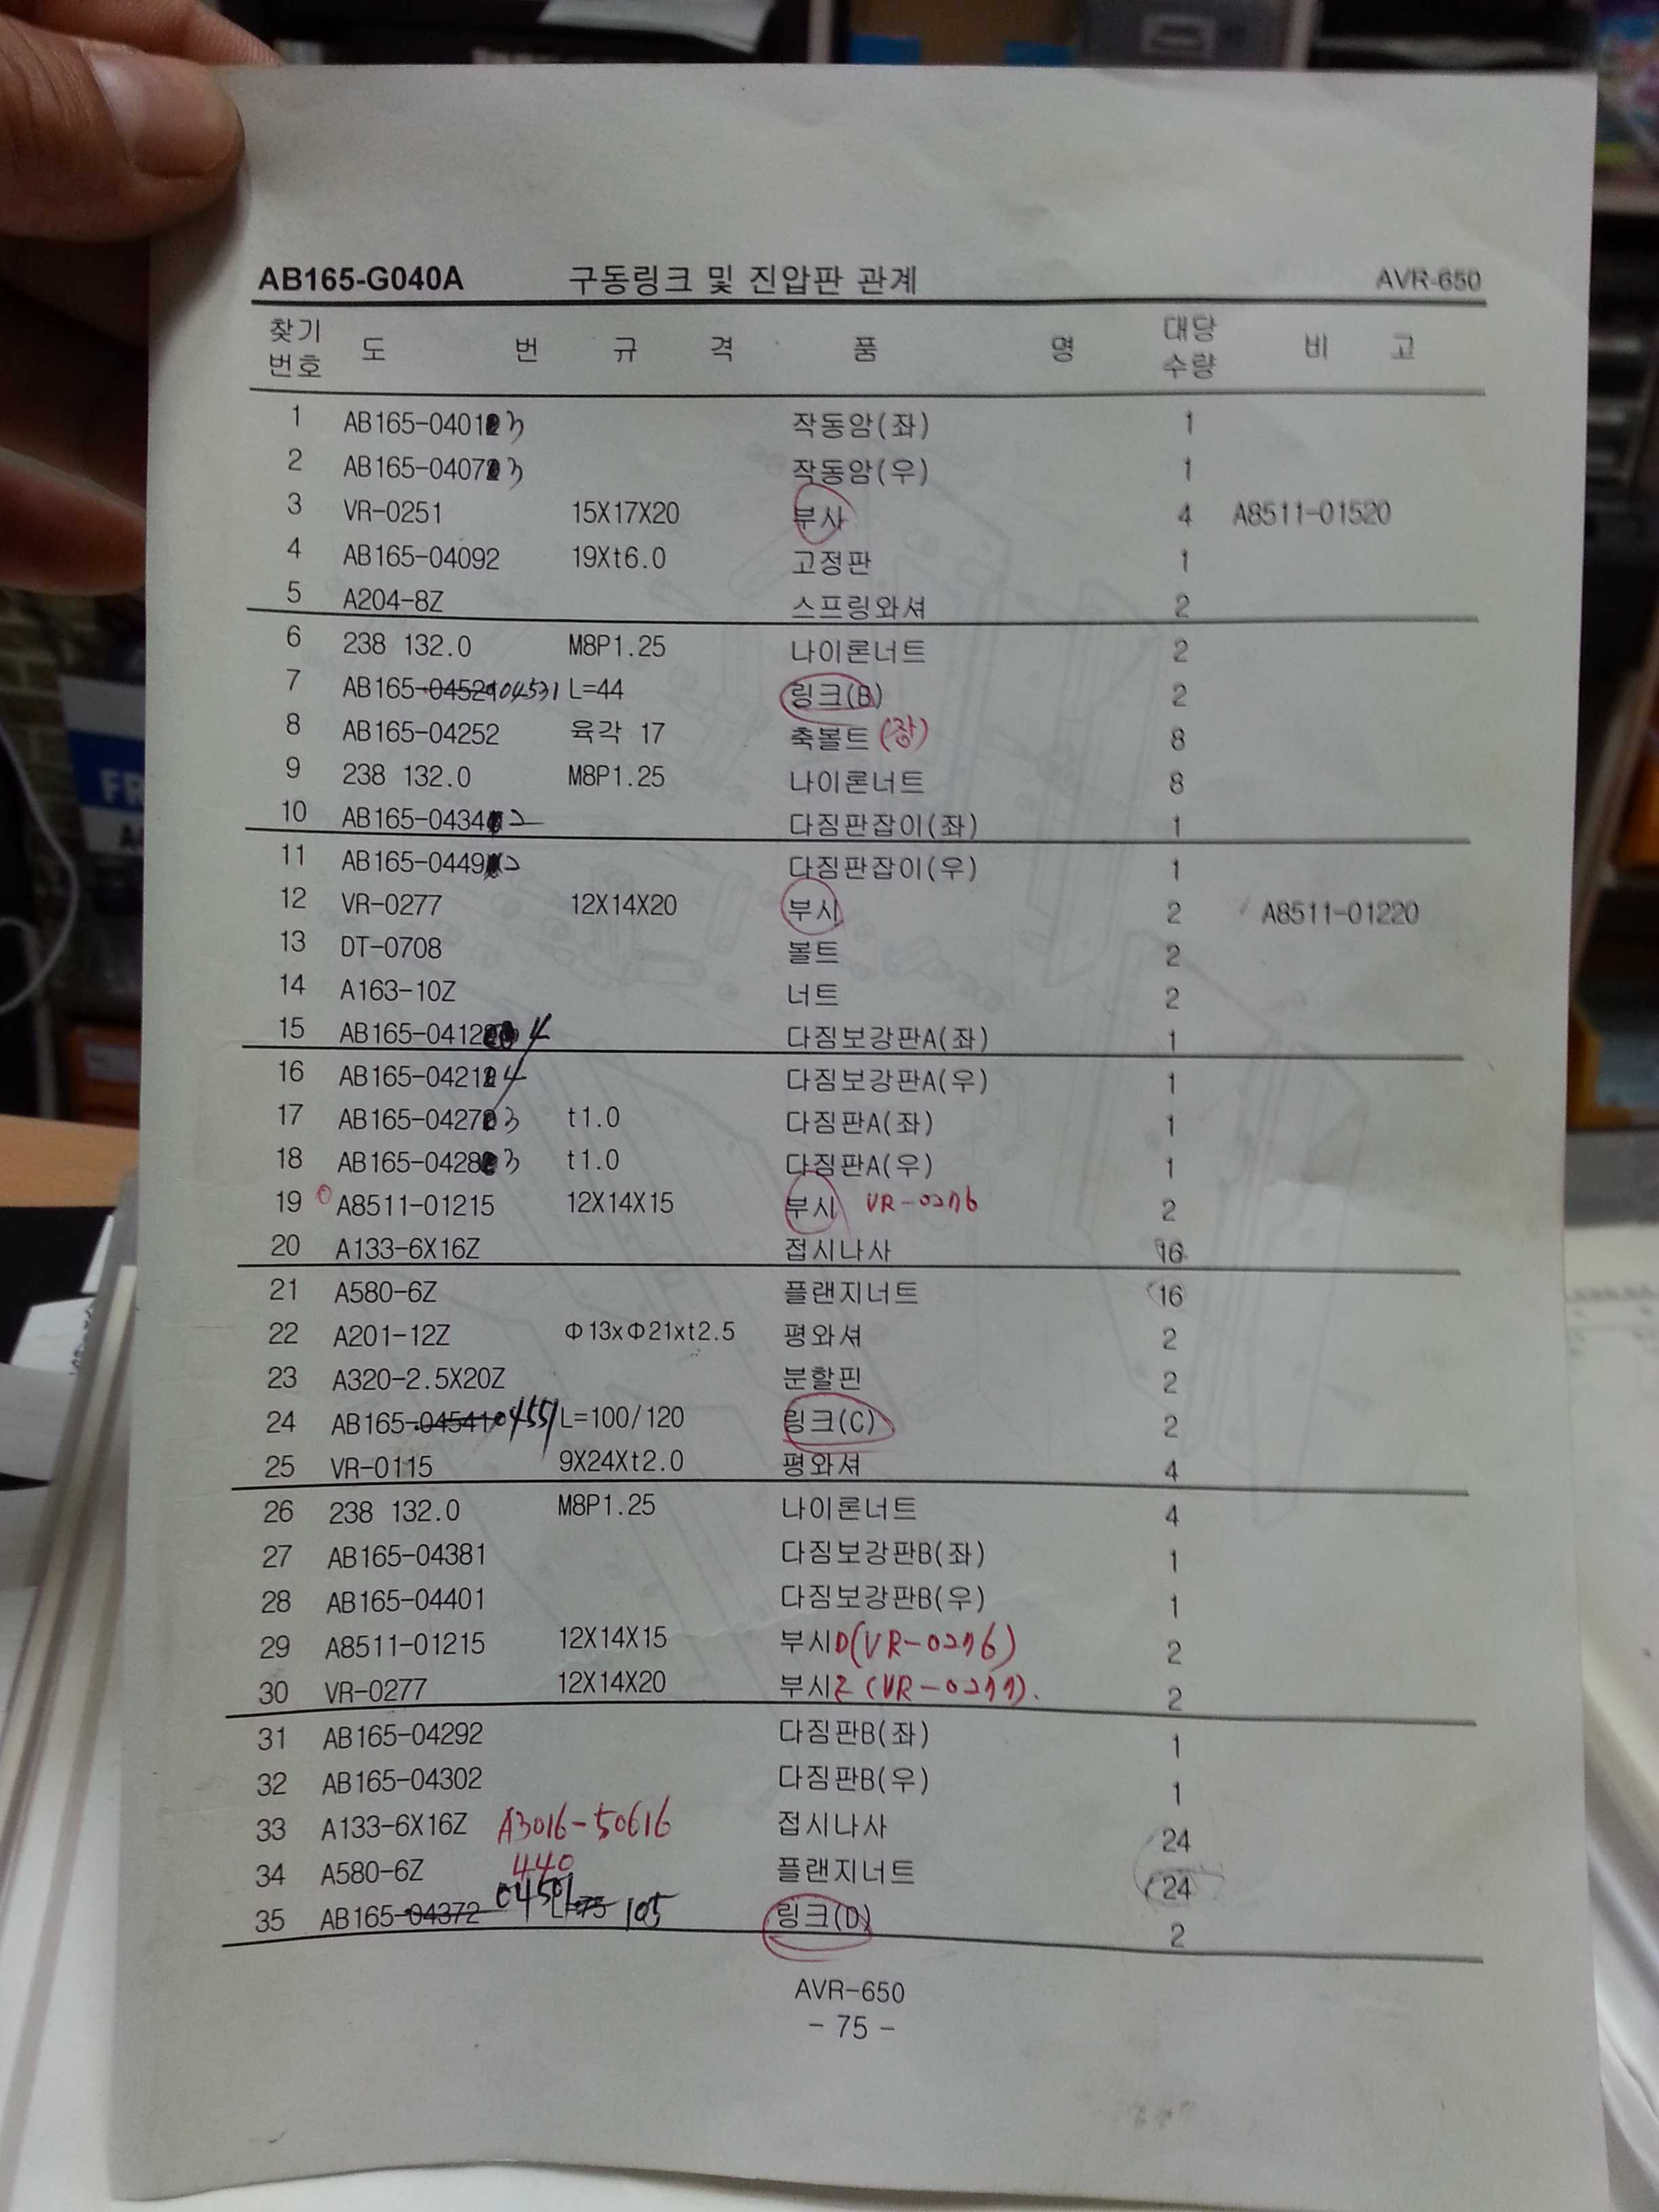 AB165-G040A 구동링크 및 진압판 관계 AVR-650
찾기 번호 도 번 규 격 품 명 대당 수량 비 고
1 AB165-04013 작동암(좌) 1
2 AB165-04073 작동암(우) 1
3 VR-0251 15X17X20 부시 4 A8511-01520
4 AB165-04092 19Xt6.0 고정판 1
5 A204-8Z 스프링와셔 2
6 238 132.0 M8P1.25 나이론너트 2
7 AB165-04521 04531 L=44 링크(B) 2
8 AB165-04252 육각 17 축볼트 (장) 8
9 238 132.0 M8P1.25 나이론너트 8
10 AB165-04342 다짐판잡이(좌) 1
11 AB165-04492 다짐판잡이(우) 1
12 VR-0277 12X14X20 부시 2 A8511-01220
13 DT-0708 볼트 2
14 A163-10Z 너트 2
15 AB165-04124 다짐보강판A(좌) 1
16 AB165-04214 다짐보강판A(우) 1
17 AB165-04273 t1.0 다짐판A(좌) 1
18 AB165-04283 t1.0 다짐판A(우) 1
19 A8511-01215 12X14X15 부시 VR-0276 2
20 A133-6X16Z 접시나사 16
21 A580-6Z 플랜지너트 16
22 A201-12Z Φ13xΦ21xt2.5 평와셔 2
23 A320-2.5X20Z 분할핀 2
24 AB165-04541 04551 L=100/120 링크(C) 2
25 VR-0115 9X24Xt2.0 평와셔 4
26 238 132.0 M8P1.25 나이론너트 4
27 AB165-04381 다짐보강판B(좌) 1
28 AB165-04401 다짐보강판B(우) 1
29 A8511-01215 12X14X15 부시D(VR-0276) 2
30 VR-0277 12X14X20 부시Z (VR-0277). 2
31 AB165-04292 다짐판B(좌) 1
32 AB165-04302 다짐판B(우) 1
33 A133-6X16Z A3016-50616 접시나사 24
34 A580-6Z 440 플랜지너트 24
35 AB165-04372 04501 105 링크(D) 2
AVR-650
- 75 -